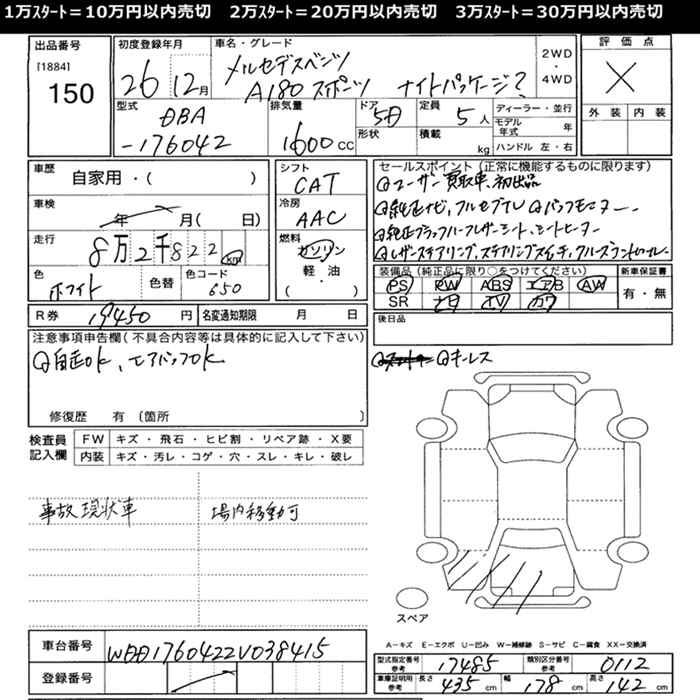 1万スタート＝10万円以内売切　2万スタート＝20万円以内売切　3万スタート＝30万円以内売切
出品番号
[1884]
150
初度登録年月
26 12月
車名・グレード
メルセデスベンツ
A180 スポーツ ナイトパッケージ?
2WD
・
4WD
評価点
X
外装 内装
型式
DBA
-176042
排気量
1600 CC
ドア
5D
形状
定員
5人
積載
kg
ディーラー・並行
モデル年式 年
ハンドル 左・右
車歴
自家用・( )
車検
年 月( 日)
走行
8万2千822 km
色
ホワイト
色替
色コード
650
シフト
CAT
冷房
AAC
燃料
ガソリン
軽・油
( )
セールスポイント(正常に機能するものに限ります)
ユーザー買取車、初出品
純正ナビ、フルセグTV バックモニター
純正ブラックハーフレザーシート、シートヒーター
レザーステアリング、ステアリングスイッチ、クルーズコントロール
装備品(純正品に限り○をつけてください) 新車保証書
PS PW ABS エアB AW
SR ナビ TV カワ
有・無
後日品
R券 19450 円 名変通知期限 月 日
注意事項申告欄(不具合内容等は具体的に記入して下さい)
自走OK、エアバッグOK
修復歴 有(箇所 )
キーレス
検査員
記入欄
FW キズ・飛石・ヒビ割・リペア跡・X要
内装 キズ・汚レ・コゲ・穴・スレ・キレ・破レ
事故現状車 場内移動可
スペア
A－キズ E－エクボ U－凹み W－補修跡 S－サビ C－腐食 XX－交換済
車台番号 WDD1760422V038415
登録番号
型式指定番号 参考 17485 類別区分番号 参考 0112
車庫証明用 参考 長さ 435 cm 幅 178 cm 高さ 142 cm